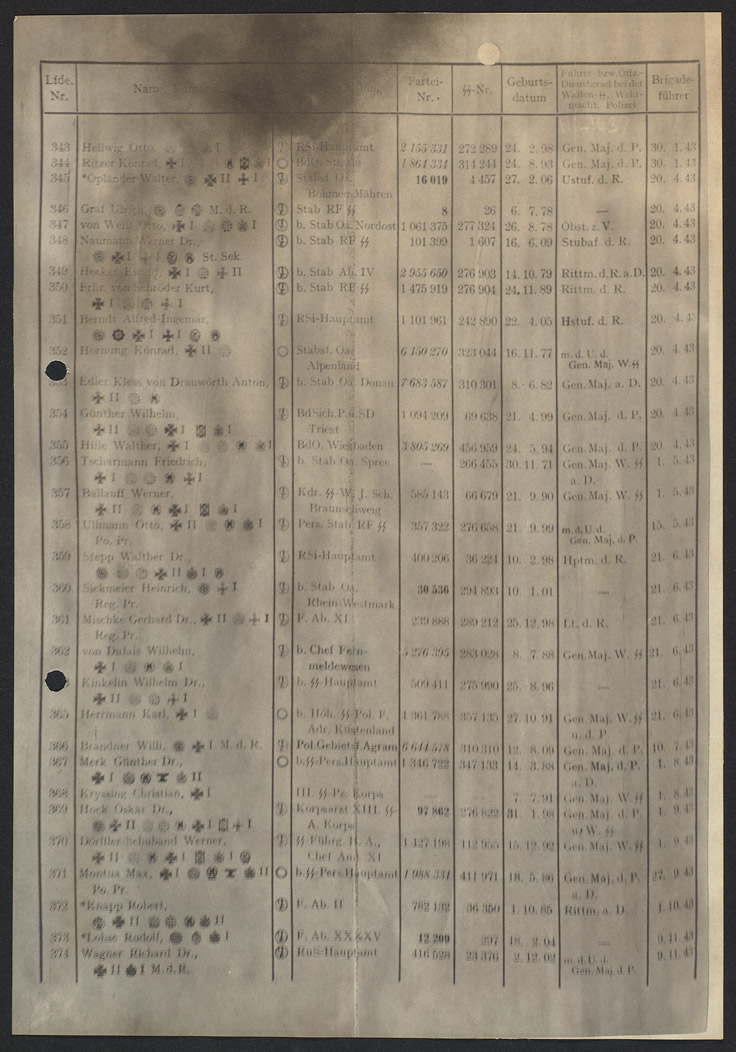 Lfde. Nr. Name, Partei- Nr. ᛋᛋ-Nr. Geburts- datum Führer- bzw. Offz.- Dienstgrad bei der Waffen-ᛋᛋ, Wehr- macht, Polizei Brigade- führer
343 Hellwig Otto, I RSi-Hauptamt 2 155 331 272 289 24. 2. 98 Gen. Maj. d. P. 30. 1. 43
344 Ritzer Konrad, I 1 864 334 314 244 24. 8. 93 Gen. Maj. d. P. 30. 1. 43
345 *Opländer Walter, II I Stabsf. Oa. 16 019 4 457 27. 2. 06 Ustuf. d. R. 20. 4. 43
Böhmen-Mähren
346 Graf Ulrich, M. d. R. Stab RF ᛋᛋ 8 26 6. 7. 78 — 20. 4. 43
347 von Weiß Otto, I I b. Stab Oa. Nordost 1 061 375 277 324 26. 8. 78 Obst. z. V. 20. 4. 43
348 Naumann Werner Dr., b. Stab RF ᛋᛋ 101 399 1 607 16. 6. 09 Stubaf. d. R. 20. 4. 43
I I St. Sek.
349 I II b. Stab Ab. IV 2 955 650 276 903 14. 10. 79 Rittm. d. R. a. D. 20. 4. 43
350 Frhr. von Schröder Kurt, b. Stab RF ᛋᛋ 1 475 919 276 904 24. 11. 89 Rittm. d. R. 20. 4. 43
I I
351 Berndt Alfred-Ingemar, RSi-Hauptamt 1 101 961 242 890 22. 4. 05 Hstuf. d. R. 20. 4. 43
I I
352 Hornung Konrad, II Stabsf. Oa. 6 150 270 323 044 16. 11. 77 m. d. U. d. 20. 4. 43
Alpenland Gen. Maj. W. ᛋᛋ
Edler Kless von Drauwörth Anton, b. Stab Oa. Donau 7 683 587 310 301 8. 6. 82 Gen. Maj. a. D. 20. 4. 43
II
354 Günther Wilhelm, BdSich. P. u. SD 1 094 209 69 638 21. 4. 99 Gen. Maj. d. P. 20. 4. 43
II I I Triest
355 Hille Walther, I I BdO. Wiesbaden 3 805 269 456 959 24. 5. 94 Gen. Maj. d. P. 20. 4. 43
356 Tscharmann Friedrich, b. Stab Oa. Spree — 266 455 30. 11. 71 Gen. Maj. W. ᛋᛋ 1. 5. 43
I I a. D.
357 Ballauff Werner, Kdr. ᛋᛋ-W. J. Sch. 585 143 66 679 21. 9. 90 Gen. Maj. W. ᛋᛋ 1. 5. 43
II I I Braunschweig
358 Ullmann Otto, II I Pers. Stab RF ᛋᛋ 357 322 276 658 21. 9. 99 m. d. U. d. 15. 5. 43
Po. Pr. Gen. Maj. d. P.
359 Stepp Walther Dr., RSi-Hauptamt 400 206 36 224 10. 2. 98 Hptm. d. R. 21. 6. 43
II I
360 Siekmeier Heinrich, I b. Stab Oa. 30 536 294 893 10. 1. 01 — 21. 6. 43
Reg. Pr. Rhein-Westmark
361 Mischke Gerhard Dr., II I F. Ab. XI 239 888 289 212 25. 12. 98 Lt. d. R. 21. 6. 43
Reg. Pr.
362 von Dufais Wilhelm, b. Chef Fern- 5 276 395 283 028 8. 7. 88 Gen. Maj. W. ᛋᛋ 21. 6. 43
I I meldewesen
Kinkelin Wilhelm Dr., b. ᛋᛋ-Hauptamt 509 411 275 990 25. 8. 96 — 21. 6. 43
II I
365 Herrmann Karl, I b. Höh. ᛋᛋ-Pol. F. 1 361 788 357 135 27. 10. 91 Gen. Maj. W. ᛋᛋ 21. 6. 43
Adr. Küstenland u. d. P.
366 Brandner Willi, I M. d. R. Pol. Gebietsf. Agram 6 644 578 310 310 12. 8. 09 Gen. Maj. d. P. 10. 7. 43
367 Merk Günther Dr., b. ᛋᛋ-Pers. Hauptamt 1 346 722 347 133 14. 3. 88 Gen. Maj. d. P. 1. 8. 43
I II a. D.
368 Kryssing Christian, I III. ᛋᛋ-Pz. Korps — — 7. 7. 91 Gen. Maj. W. ᛋᛋ 1. 8. 43
369 Hock Oskar Dr., Korpsarzt XIII. ᛋᛋ- 97 862 276 822 31. 1. 98 Gen. Maj. d. P. 1. 9. 43
II I I A. Korps u. W. ᛋᛋ
370 Dörffler-Schuband Werner, ᛋᛋ-Führg. H. A., 1 427 198 112 955 15. 12. 92 Gen. Maj. W. ᛋᛋ 1. 9. 43
II I I Chef Amt XI
371 Montua Max, I II b. ᛋᛋ-Pers. Hauptamt 1 988 331 411 971 18. 5. 86 Gen. Maj. d. P. 27. 9. 43
Po. Pr. a. D.
372 *Knapp Robert, F. Ab. II 782 132 36 350 1. 10. 85 Rittm. a. D. 1. 10. 43
II II
373 *Lohse Rudolf, I F. Ab. XXXXV 12 209 397 18. 2. 04 — 9. 11. 43
374 Wagner Richard Dr., RuS-Hauptamt 416 528 23 376 2. 12. 02 m. d. U. d. 9. 11. 43
II I M. d. R. Gen. Maj. d. P.